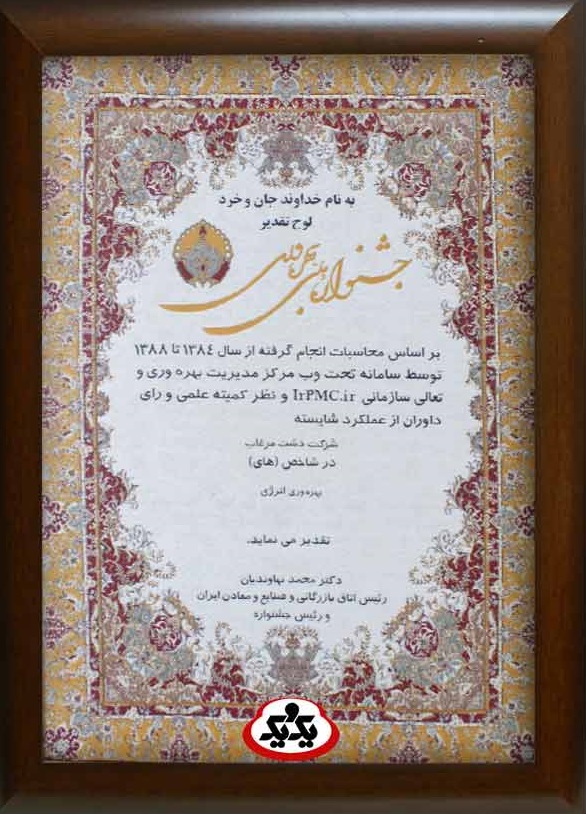 به نام خداوند جان و خرد
لوح تقدیر
جشنواره ملی بهره وری
بر اساس محاسبات انجام گرفته از سال ۱۳۸٤ تا ۱۳۸۸
توسط سامانه تحت وب مرکز مدیریت بهره وری و
تعالی سازمانی IrPMC.ir و نظر کمیته علمی و رای
داوران از عملکرد شایسته
شرکت دشت مرغاب
در شاخص (های)
بهره‌وری انرژی
تقدیر می نماید.
دکتر محمد نهاوندیان
رئیس اتاق بازرگانی و صنایع و معادن ایران
و رئیس جشنواره
یک یک